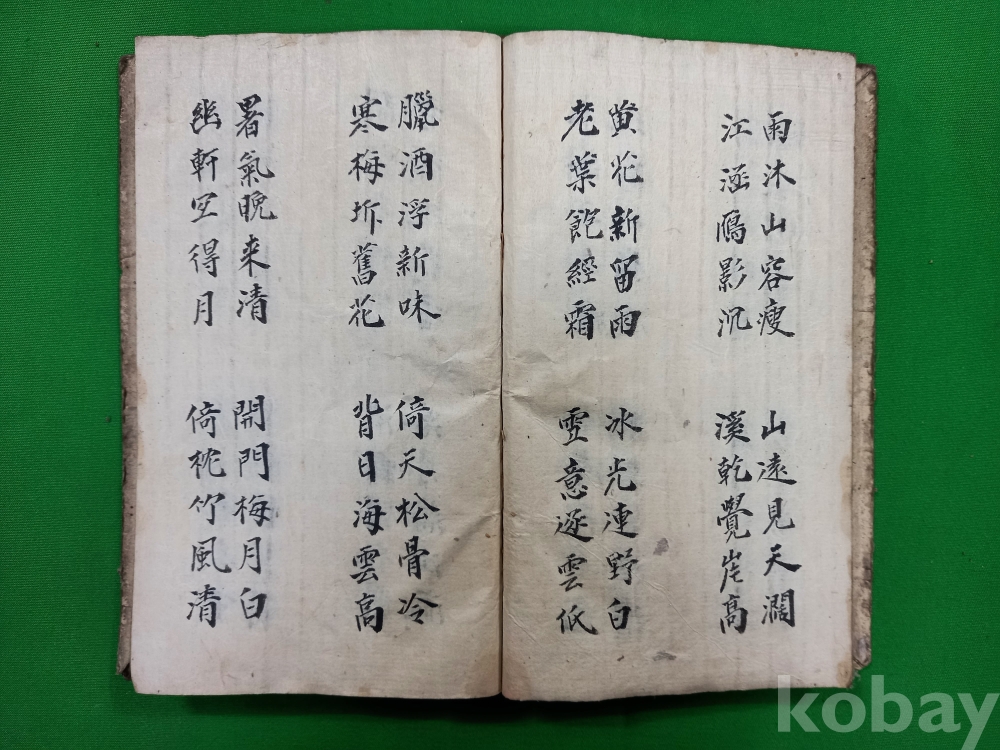 雨沐山容瘦
江涵鴈影沉
山遠見天濶
溪乾覺崖高
黄花新留雨
老葉飽經霜
冰光連野白
雪意逐雲低
臘酒浮新味
寒梅坼舊花
倚天松骨冷
背日海雲高
暑氣晚来清
幽軒空得月
開門梅月白
倚枕竹風清
kobay